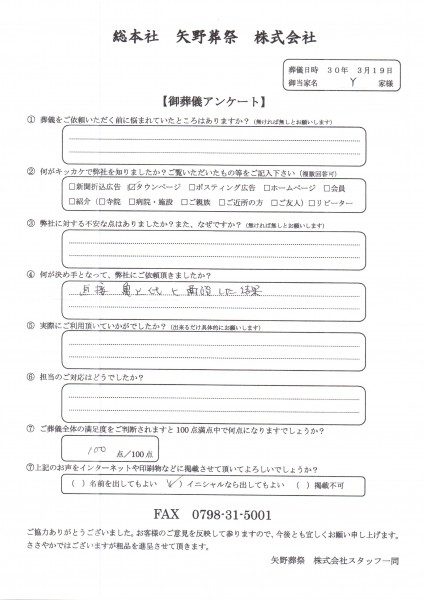 総本社 矢野葬祭 株式会社
葬儀日時 30年 3月19日
御当家名 Y 家様
【御葬儀アンケート】
① 葬儀をご依頼いただく前に悩まれていたところはありますか？（無ければ無しとお願いします）
② 何がキッカケで弊社を知りましたか？ご覧いただいたもの等をご記入下さい（複数回答可）
□新聞折込広告 ☑タウンページ □ポスティング広告 □ホームページ □会員
□紹介（□寺院 □病院・施設 □ご親族 □ご近所の方 □ご友人）□リピーター
③ 弊社に対する不安な点はありましたか？また、なぜですか？（無ければ無しとお願いします）
④ 何が決め手となって、弊社にご依頼頂きましたか？
した結果
⑤ 実際にご利用頂いていかがでしたか？（出来るだけ具体的にお願いします）
⑥ 担当のご対応はどうでしたか？
⑦ ご葬儀全体の満足度をご判断されますと100点満点中で何点になりますでしょうか？
100 点/100点
⑦上記のお声をインターネットや印刷物などに掲載させて頂いてよろしいでしょうか？
（ ）名前を出してもよい （✓）イニシャルなら出してもよい （ ）掲載不可
FAX 0798-31-5001
ご協力ありがとうございました。お客様のご意見を反映して参りますので、今後とも宜しくお願い申し上げます。
ささやかではございますが粗品を進呈させて頂きます。
矢野葬祭 株式会社スタッフ一同